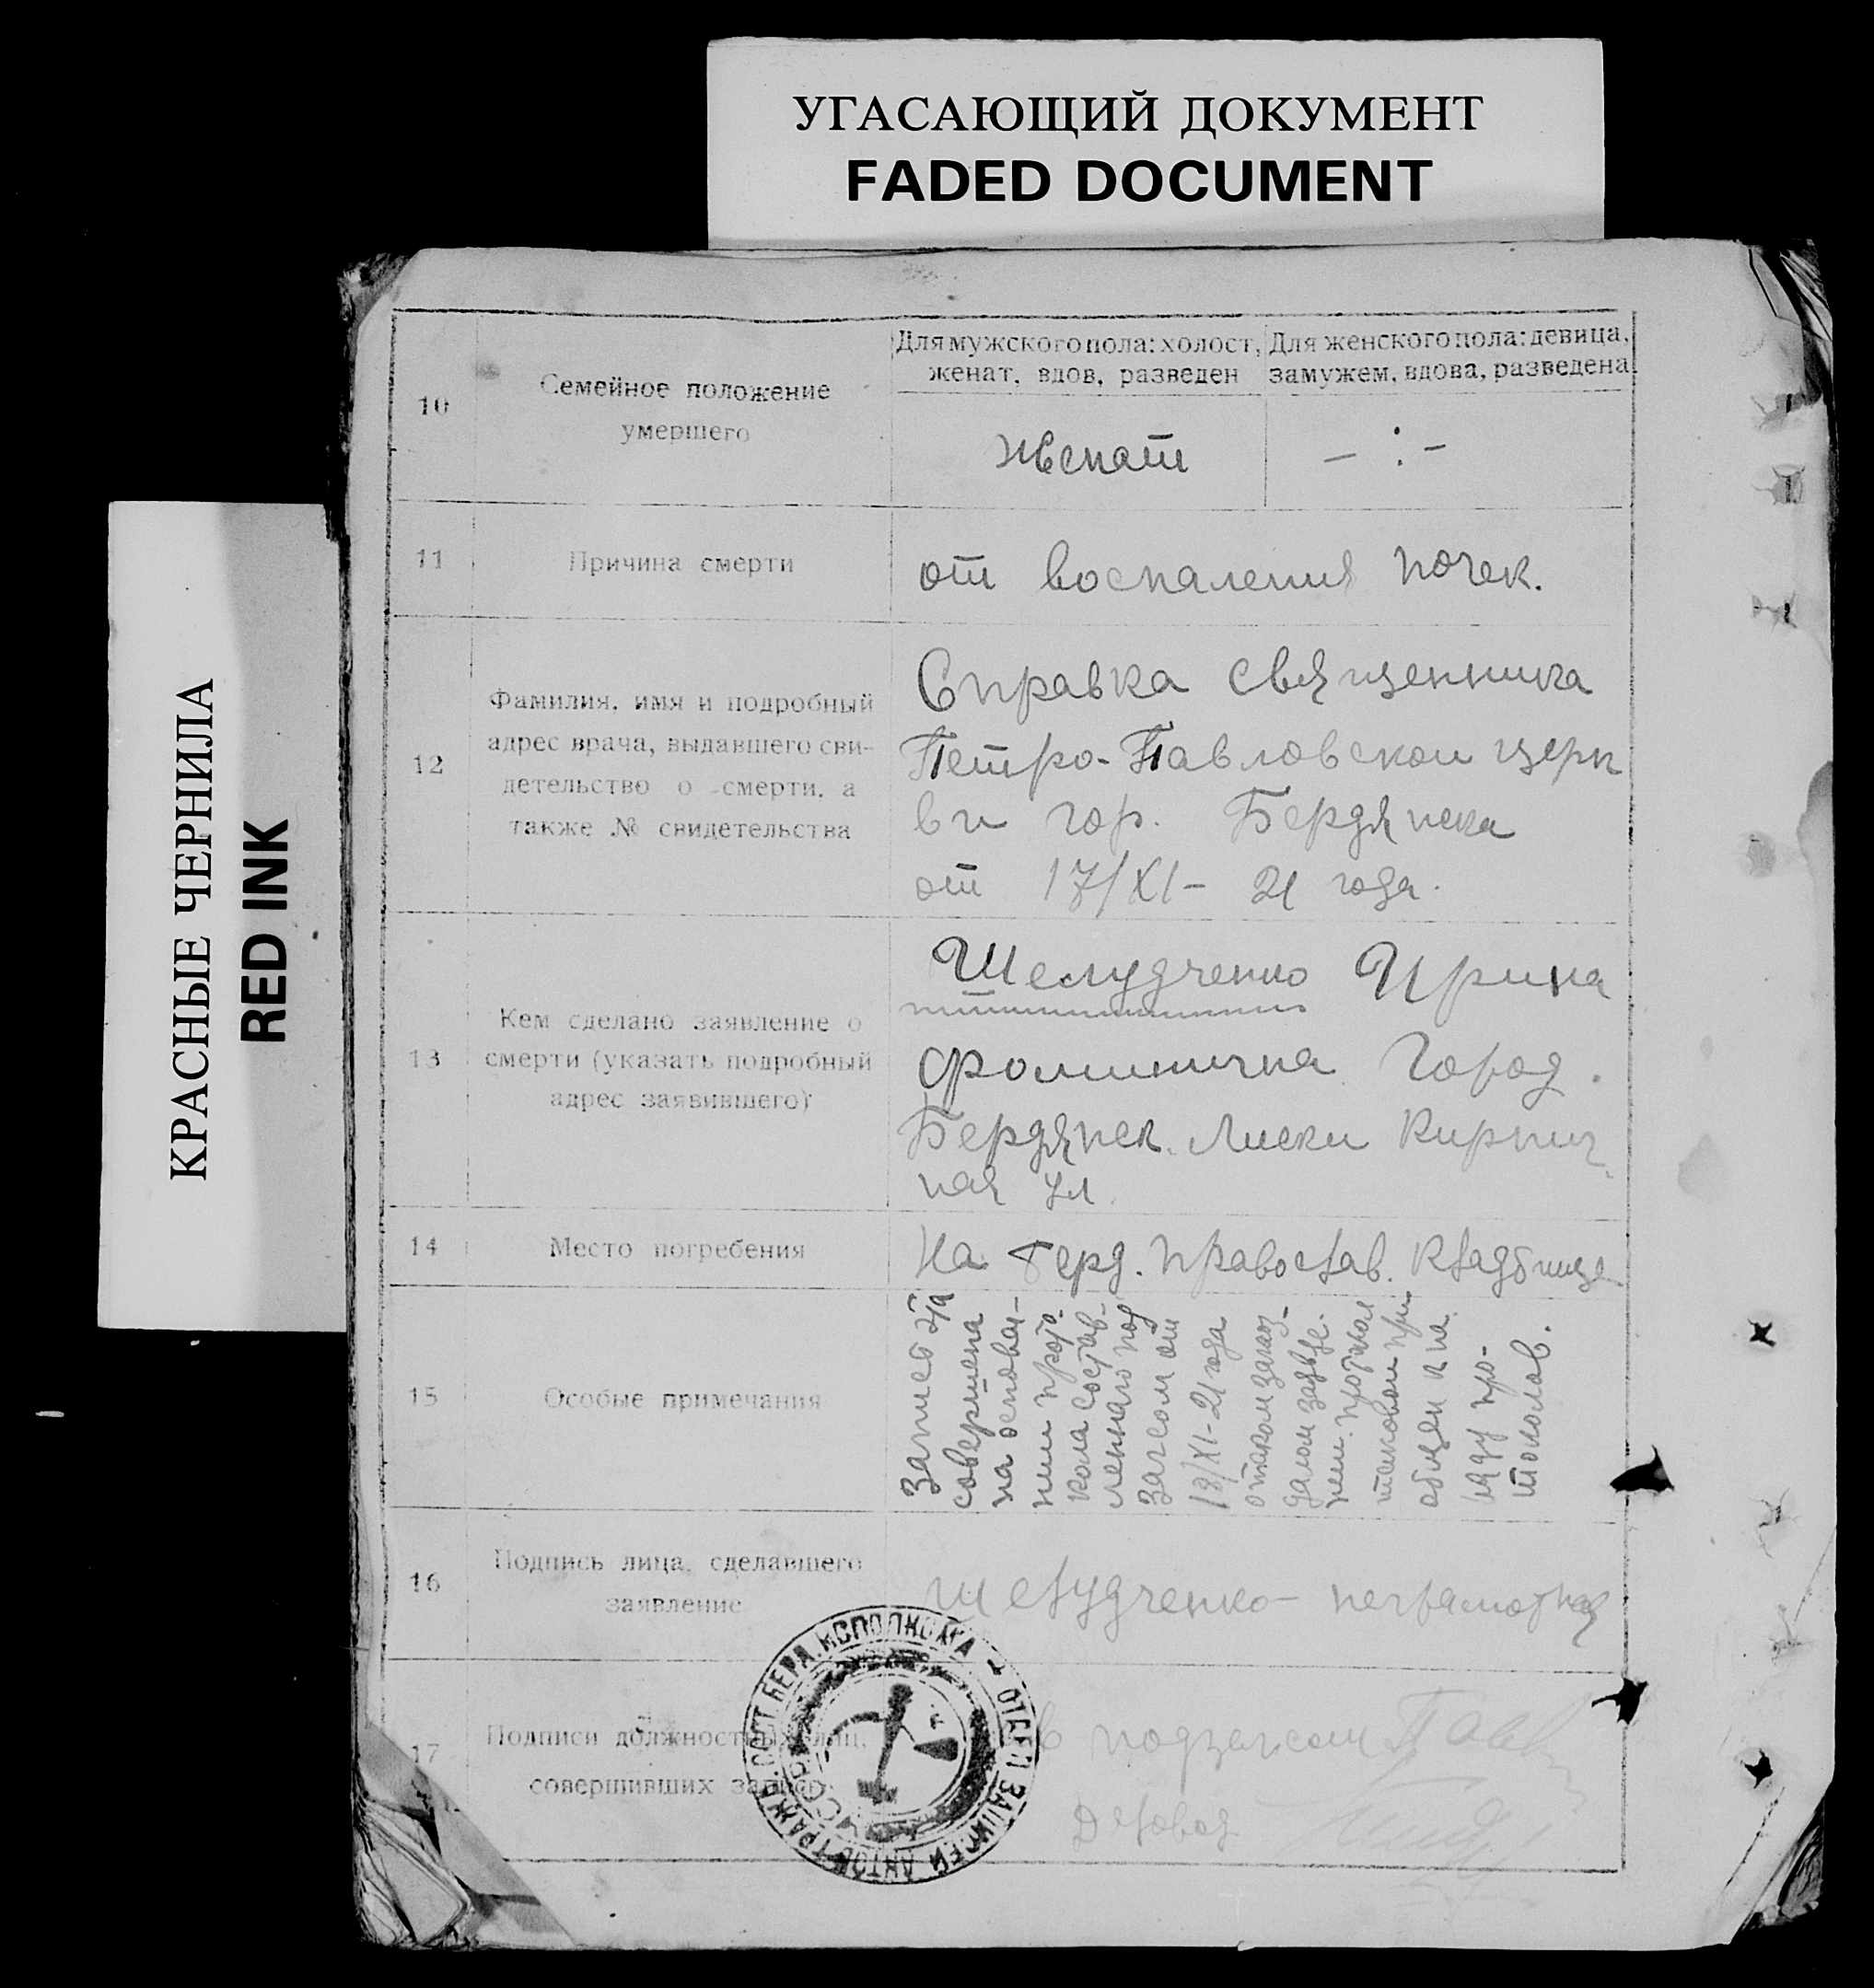 УГАСАЮЩИЙ ДОКУМЕНТ
FADED DOCUMENT
КРАСНЫЕ ЧЕРНИЛА
RED INK
10
Семейное положение
умершего
Для мужского пола: холост,
женат, вдов, разведен
Для женского пола: девица,
замужем, вдова, разведена
женат
— : —
11
Причина смерти
от воспаления почек.
12
Фамилия, имя и подробный
адрес врача, выдавшего сви-
детельство о смерти, а
также № свидетельства
Справка священника
Петро-Павловской церк
ви гор. Бердянска
от 17/XI - 21 года.
13
Кем сделано заявление о
смерти (указать подробный
адрес заявившего)
Шелудченко Ирина
Фоминична Город.
Бердянск. Лиски Кирпич
ная ул.
14
Место погребения
На берд. православ. кладбище
15
Особые примечания
Запись эта
совершена
на основа-
нии прото-
кола состав-
ленного под
загсом от
18/XI-21 года
далом
общем
ряду про-
токолов.
16
Подпись лица, сделавшего
заявление
Шелудченко - неграмотная
17
Подписи должностных лиц,
совершивших запись
подзагсом
Деловод
БЕРД. ИСПОЛКОМА
ОТДЕЛ ЗАПИСЕЙ АКТОВ ГРАЖД. СОСТ